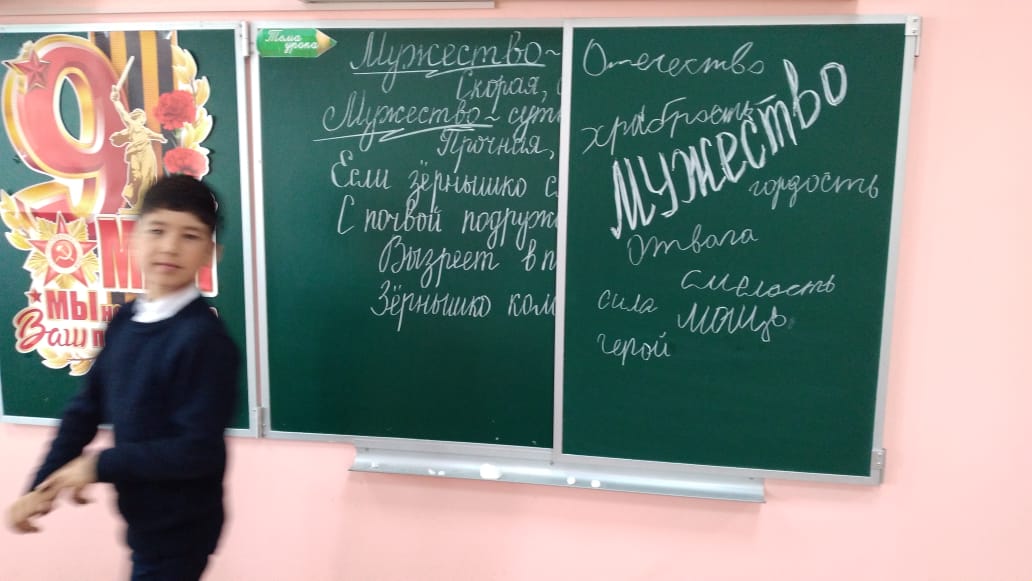 9
МАЯ
МЫ
Ваш
Тема
урока
Мужество -
Скорая,
Мужество - суть
Прочная,
Если зёрнышко с
С почвой подруж
Вызреет в п
Зёрнышко ком
Отечество
храбрость
Мужество
гордость
Отвага
смелость
сила мощь
герой